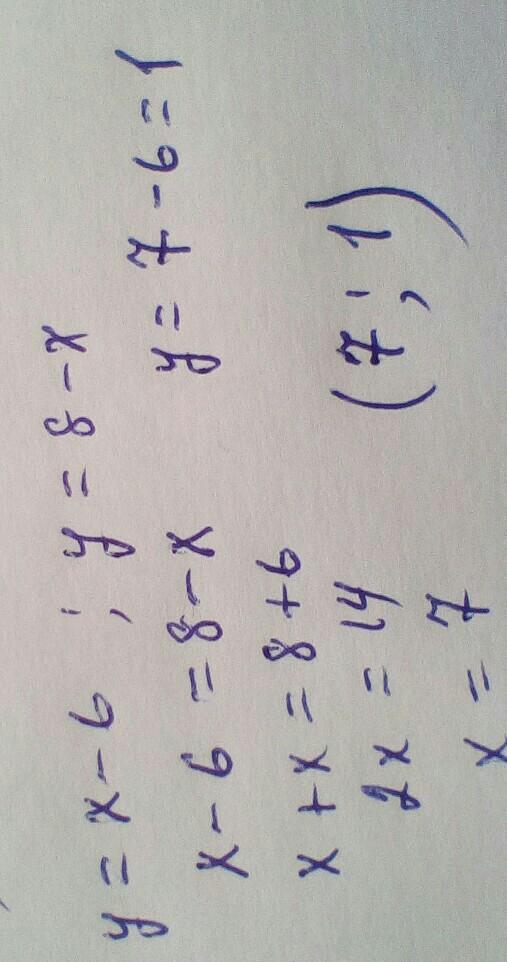 y = x - 6 ; y = 8 - x
x - 6 = 8 - x y = 7 - 6 = 1
x + x = 8 + 6
2x = 14 (7 ; 1)
x = 7